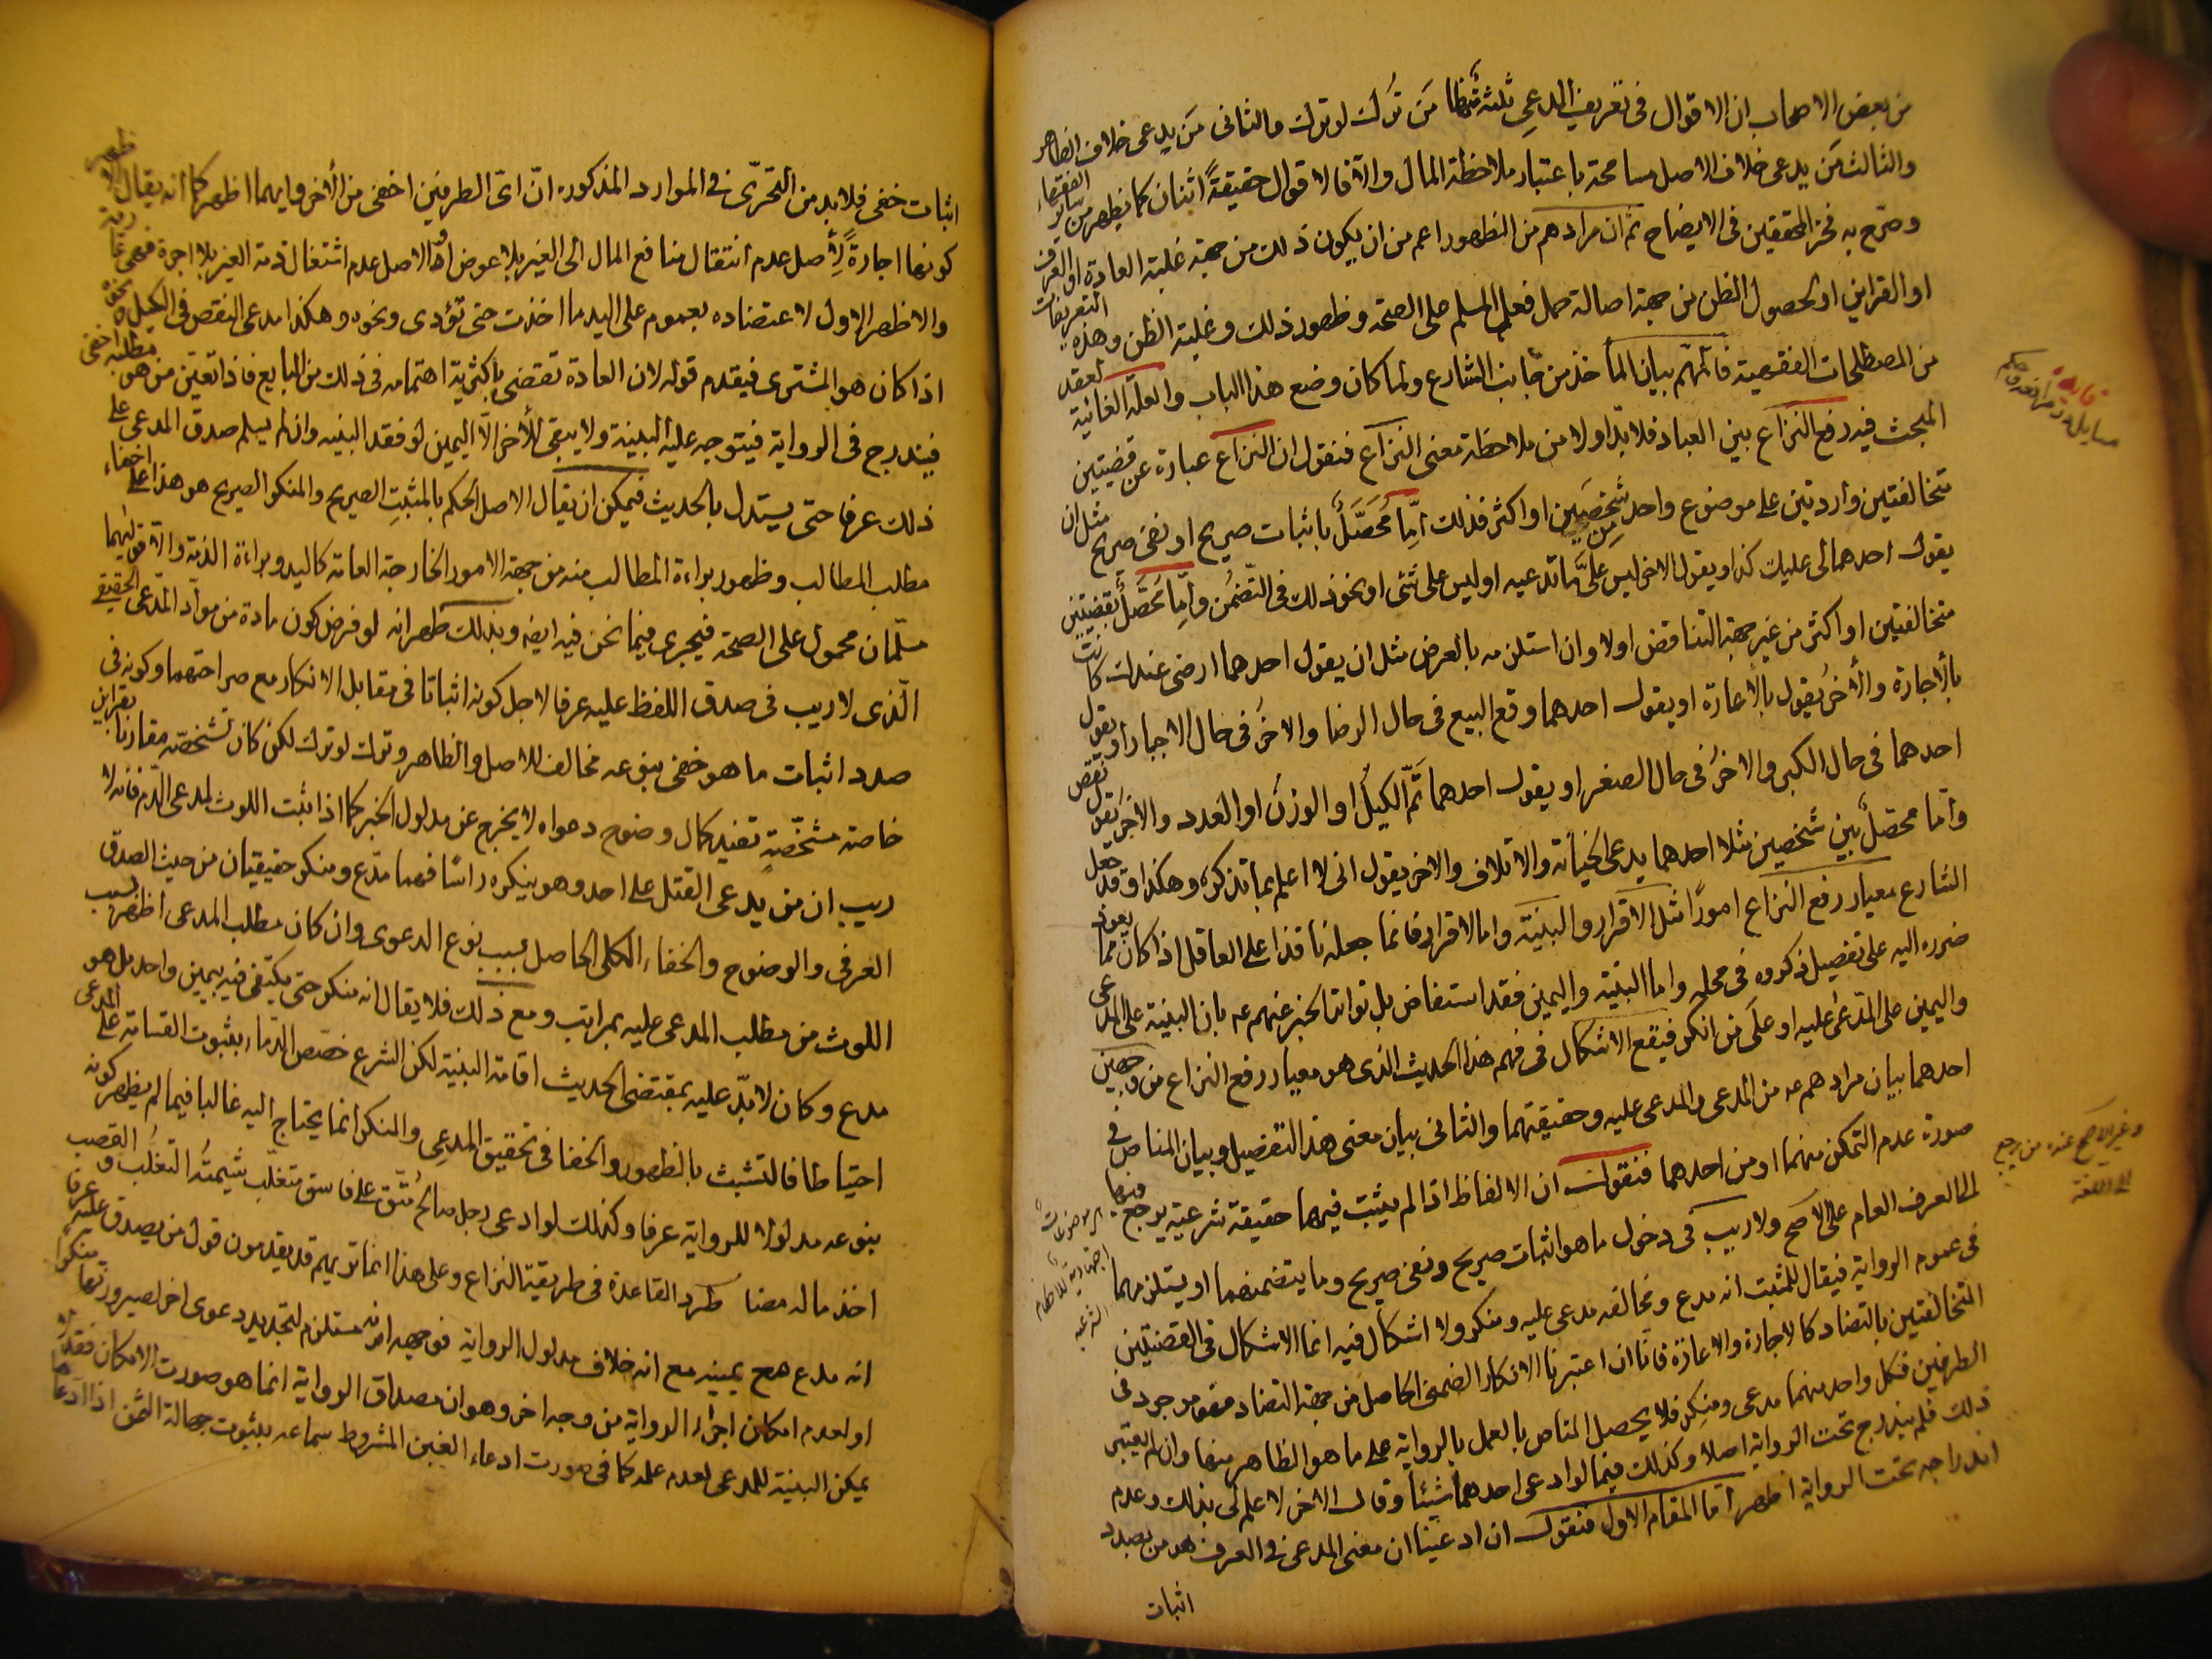 من بعض الاصحاب ان الاقوال فى تعريف المدعى ثلثة احدها مَن تُرك لو ترك والثانى مَن يدعى خلاف الظاهر
والثالث مَن يدعى خلاف الاصل مسامحة باعتبار ملاحظة المال والا فالاقوال حقيقةً اثنان كما يظهر من سائر الفقهاء
وصرح به فخر المحققين فى الايضاح ثم ان مرادهم من الظهور اعم من ان يكون ذلك من جهة غلبة العادة او العرف
او القراين او لحصول الظن من جهة اصالة حمل فعل المسلم على الصحة وظهور ذلك وغلبة الظن وهذه التعريفات
من المصطلحات الفقهية فالمهم بيان المأخذ من جانب الشارع ولما كان وضع هذا الباب والعلة الغائية لعقد
المبحث فيه رفع النزاع بين العباد فلابد اولا من ملاحظة معنى النزاع فنقول ان النزاع عبارة عن قضيتين
متخالفتين واردتين على موضوع واحد من شخصين او اكثر فذلك امّا مُحَصَّلٌ باثبات صريح او نفى صريح مثل ان
يقول احدهما لى عليك كذا ويقول الاخر ليس علىّ ما تدعيه او ليس على شئ او نحو ذلك فى التضمن وامّا مُحَصَّلٌ بقضيتين
متخالفتين او اكثر من غير جهة التناقض اولا وان استلزمه بالعرض مثل ان يقول احدهما ارضى عندك كانت
بالاجارة والأخر يقول بالاعارة او يقول احدهما وقع البيع فى حال الرضا والاخر فى حال الاجبار او يقول
احدهما فى حال الكبر والاخر فى حال الصغر او يقول احدهما تمّ الكيل او الوزن او العدد والاخر يقول نقص
وامّا محصّلٌ بين شخصين مثلا احدهما يدعى الخيانة والاتلاف والاخر يقول انى لا اعلم بما تذكره وهكذا وقد جعل
الشارع معيار رفع النزاع امورًا مثل الاقرار والبينة واما الاقرار فانما جعله نافذا على العاقل اذا كان مما يعود
ضرره اليه على تفصيل ذكروه فى محله واما البينة واليمين فقد استفاض بل تواتر الخبر عنهم عه بان البينة على المدعى
واليمين على المدّعى عليه او على من انكر فيقع الاشكال فى فهم هذا الحديث الذى هو معيار رفع النزاع من وجهين
احدهما بيان مرادهم عه من المدعى والمدعى عليه وحقيقتهما والثانى بيان معنى هذا التفصيل وبيان المناص فى
صورة عدم التمكن منهما او من احدهما فنقول ان الالفاظ اذا لم يثبت فيها حقيقة شرعية يرجع فيها
الى العرف العام على الاصح ولا ريب فى دخول ما هو اثبات صريح ونفى صريح وما يتضمنهما او يستلزمهما
فى عموم الرواية فيقال للمثبت انه مدع ومخالفه مدعى عليه ومنكر ولا اشكال فيه انما الاشكال فى القضيتين
المتخالفتين بالتضاد كالاجارة والاعارة فانا ان اعتبرنا الانكار الضمنى الحاصل من جهة التضاد فهو موجود فى
الطرفين فكل واحد منهما مدعى ومنكر فلا يحصل المناص بالعمل بالرواية على ما هو الظاهر منها وان لم يعتبر
ذلك فلم يندرج تحت الرواية اصلا وكذلك فيما لو ادعى احدهما شيئا وقال الاخر لا علم لى بذلك وعدم
اندراجه تحت الرواية اظهر امّا المقام الاول فنقول ان ادعينا ان معنى المدعى فى العرف هو من بصدد
اثبات
فايدة
وغير الاصح عنده من يرجع
الى اللغة
اثبات خفى فلا بد من التحرّى فى الموارد المذكورة انّ اىّ الطرفين اخفى من الأخر وايهما اظهر كما انه يقال
كونها اجارةً لأصل عدم انتقال منافع المال الى الغير بلا عوض او الاصل عدم اشتغال ذمة الغير بلا اجرة
والاظهر الاول لاعتضاده بعموم على اليد ما اخذت حتى تؤدى ونحوه وهكذا مدعى النقص فى الكيل ونحوه
اذا كان هو المشترى فيقدم قوله لان العادة تقتضى بأكثرية اهتمامه فى ذلك من البايع فاذا تعين من هو مطلبه اخفى
فيندرج فى الرواية فيتوجه عليه البينة ولا يبقى للأخر الّا اليمين لو فقد البينه وان لم يسلم صدق المدعى على
ذلك عرفا حتى يستدل بالحديث فيمكن ان يقال الاصل الحكم بالمثبت الصريح والمنكر الصريح هو هذا اعنى اخفاء
مطلب المطالب وظهور براءة المطالب منه من جهة الامور الخارجة العامة كاليد وبراءة الذمة والا فقوليهما
مسلّمان محمول على الصحة فيجرى فيما نحن فيه ايضه وبذلك ظهر انه لو فرض كون مادة من موادّ المدّعى الحقيقى
الّذى لا ريب فى صدق اللفظ عليه عرفا لاجل كونه اثباتا فى مقابل الانكار مع صراحتهما وكونه فى
صدد اثبات ما هو خفى بنوعه مخالف للاصل والظاهر وترك لو ترك لكن كان تشخصه مقارنا بقراين
خاصة مشخّصة تفيد كمال وضوح دعواه لا يخرج عن مدلول الخبر كما اذا ثبت اللوث لمدعى الدّم فانه لا
ريب ان من يدعى القتل على احد وهو ينكره راسًا فهما مدّع ومنكر حقيقيان من حيث الصدق
العرفى والوضوح والخفاء الكلى الحاصل بسبب نوع الدعوى وان كان مطلب المدعى اظهر بسبب
اللوث من مطلب المدعى عليه بمراتب ومع ذلك فلا يقال انه منكر حتى يكتفى فيه بيمين واحد بل هو
مدع وكان لا بدّ عليه بمقتضى الحديث اقامة البينة لكن الشرع خصّص الدّماء بثبوت القسامة على المدعى
احتياطا فالتشبث بالظهور والخفا فى تحقيق المدعى والمنكر انما يحتاج اليه غالبا فيما لم يظهر كونه
بنوعه مدلولا للرواية عرفا وكذلك لو ادعى رجل صالح متّق على فاسق متغلّب شيمتُه التغلّب والغصب
اخذ ماله مضا طرد القاعدة فى طريقة النزاع وعلى هذا انما تريهم قد يقدمون قول من يصدق عليه عرفا
انه مدع مع يمينه مع انه خلاف مدلول الرواية فوجهه امّا انه مستلزم لتجديد دعوى اخر لصيرورتها منكرا
او لعدم امكان اجراء الرواية من وجه اخر وهو ان مصداق الرواية انما هو صورت الامكان فقد لا
يمكن البينة للمدعى لعدم علمه كما فى صورت ادعاء الغبن المشروط سماعه بثبوت جهالة الثمن اذا ادعاها